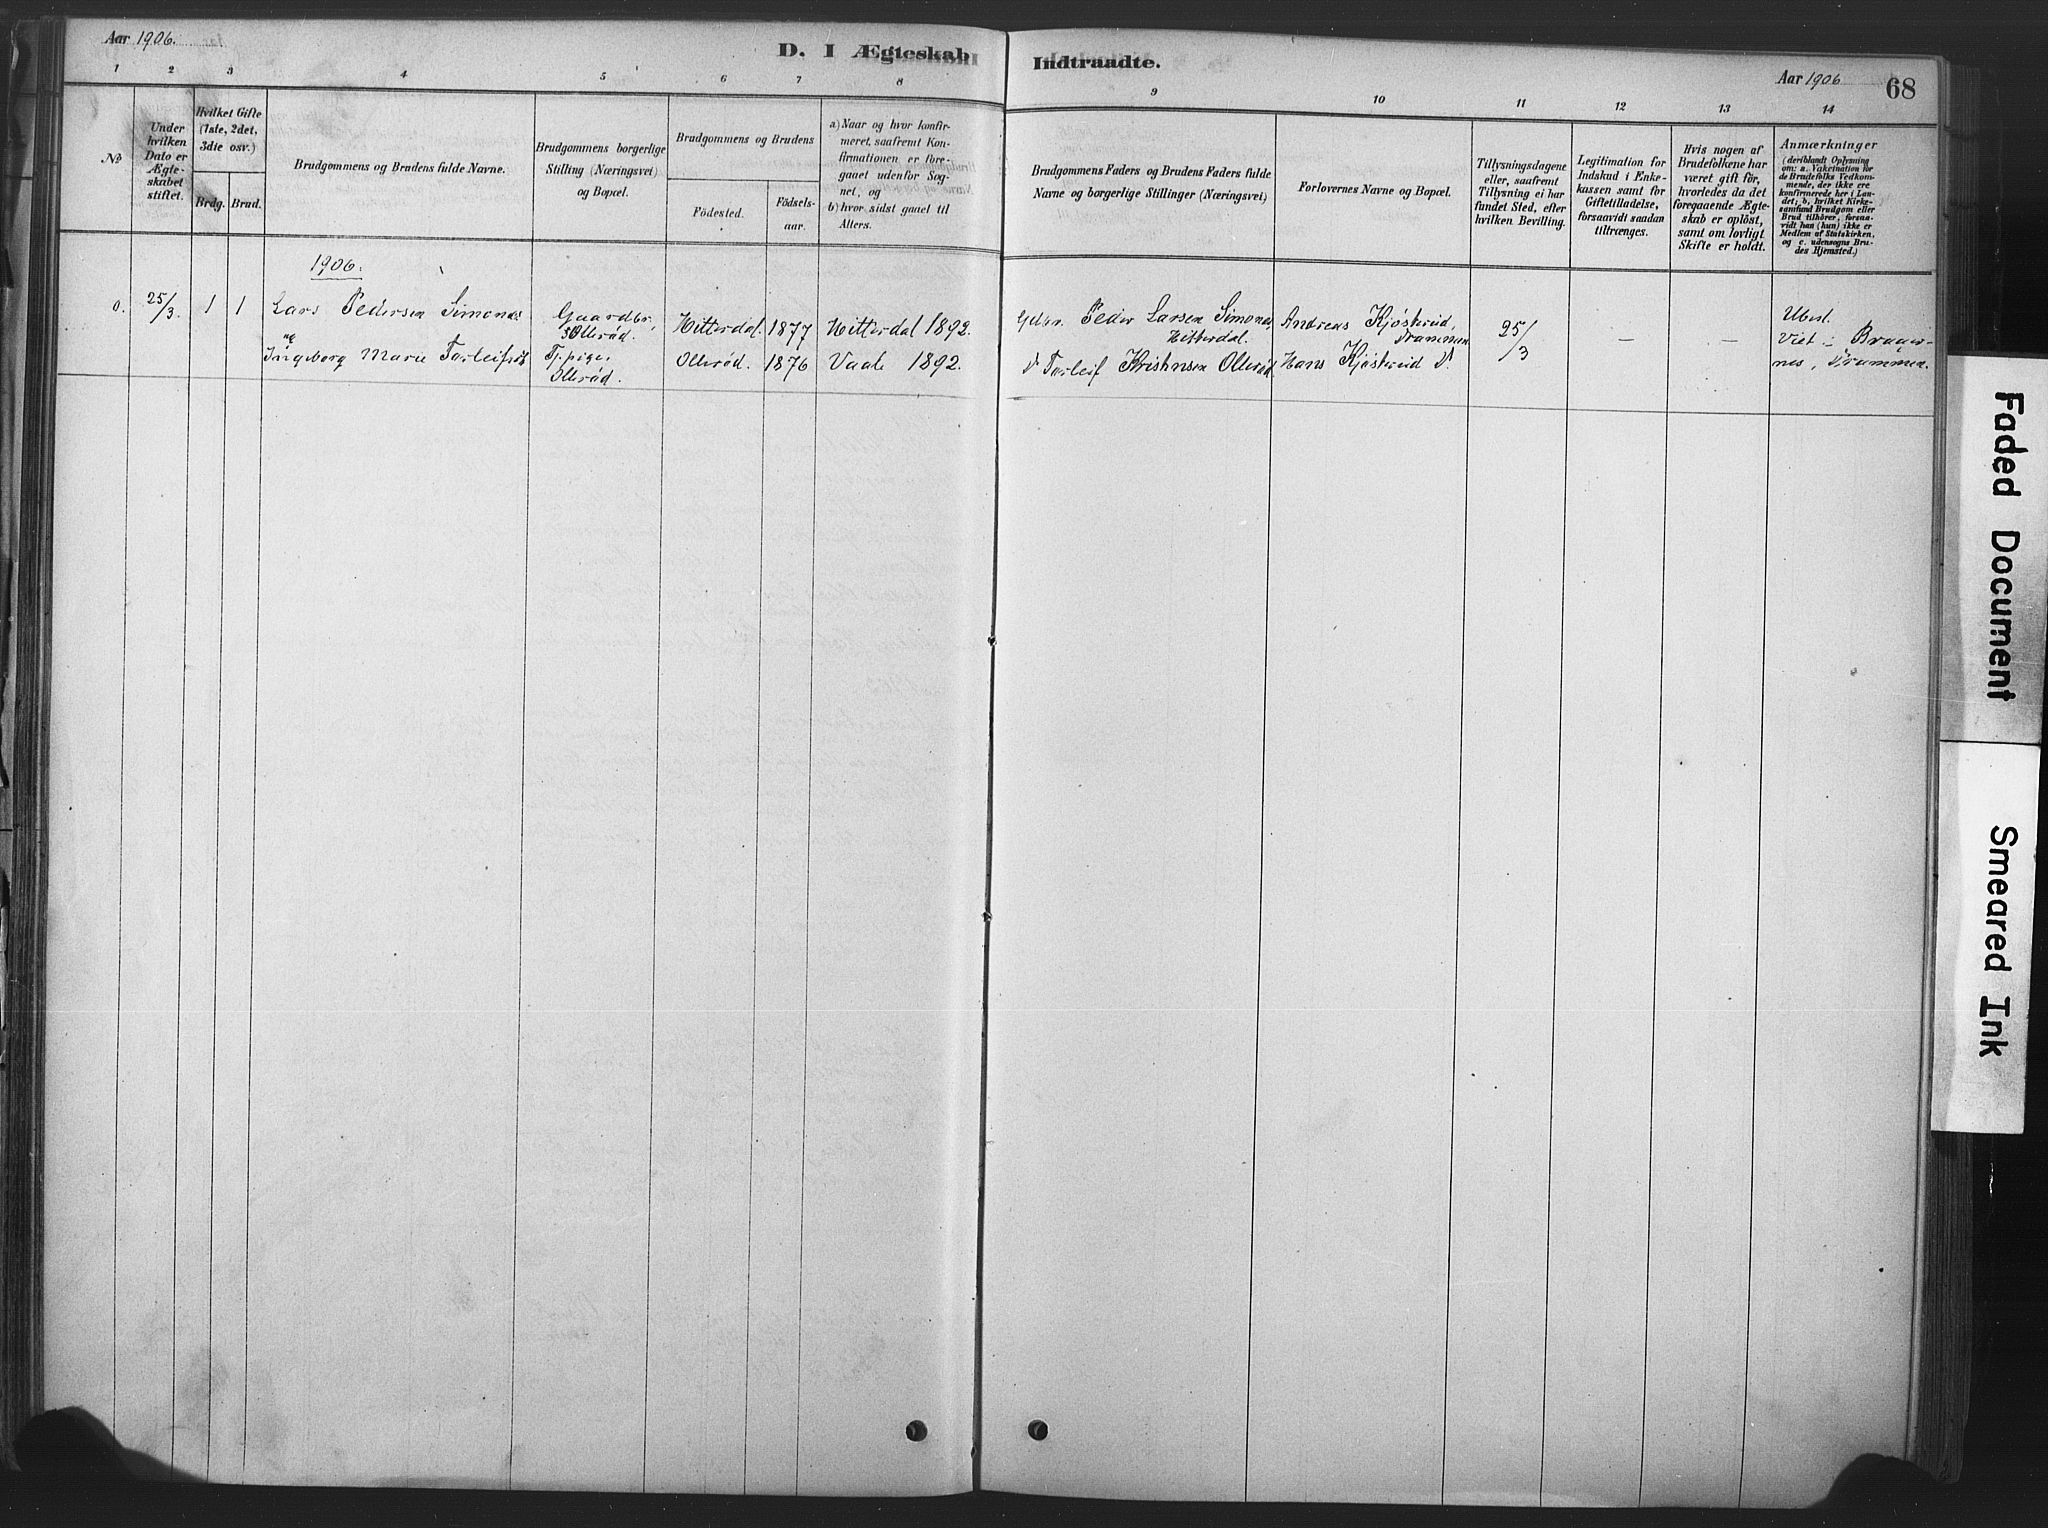 Aar 1906.
D. I Ægteskab
Indtraadte.
Aar 1906
68
1 2 3 4 5 6 7 8
9 10 11 12 13 14
No
Under hvilken Dato er Ægte-skabet stiftet.
Hvilket Gifte (1ste, 2det, 3die osv.)
Brdg.
Brud.
Brudgommens og Brudens fulde Navne.
Brudgommens borgerlige Stilling (Næringsvei) og Bopæl.
Brudgommens og Brudens
Födested.
Födsels-aar.
a) Naar og hvor konfir-meret, saafremt Kon-firmationen er fore-gaaet udenfor Sog-net, og
b) hvor sidst gaaet til Alters.
Brudgommens Faders og Brudens Faders fulde Navne og borgerlige Stillinger (Næringsvei)
Forlovernes Navne og Bopæl.
Tillysningsdagene eller, saafremt Tillysning ei har fundet Sted, efter hvilken Bevilling.
Legitimation for Indskud i Enke-kassen samt for Giftetilladelse, forsaavidt saadan tiltrænges.
Hvis nogen af Brudefolkene har været gift för, hvorledes da det foregaaende Ægte-skab er oplöst, samt om lovligt Skifte er holdt.
Anmærkninger
(deriblandt Oplysning om: a. Vakcination for de Brudefolks Vedkom-mende, der ikke ere konfirmerede her i Lan-det; b. hvilket Kirke-samfund Brudgom eller Brud tilhörer, forsaa-vidt han (hun) ikke er Medlem af Statskirken, og c. udensogns Bru-des Hjemsted.)
1906.
0. 25/3. 1 1 Lars Pedersen Simones Gaardbr, Ollerød. Hitterdal. 1877 Hitterdal 1892.
og
Ingeborg Marie Torleifsdt Tj.pige, Ollerød. Ollerød. 1876 Vaale 1892.
Gdbr. Peder Larsen Simones, Hitterdal. Andreas Kjøsterud, Drammen 25/3 — —
d° Torleif Kristnsen Ollerød Hans Kjøsterud d°.
Viet i Brager-
nes, Drammen.
Faded Document
Smeared Ink